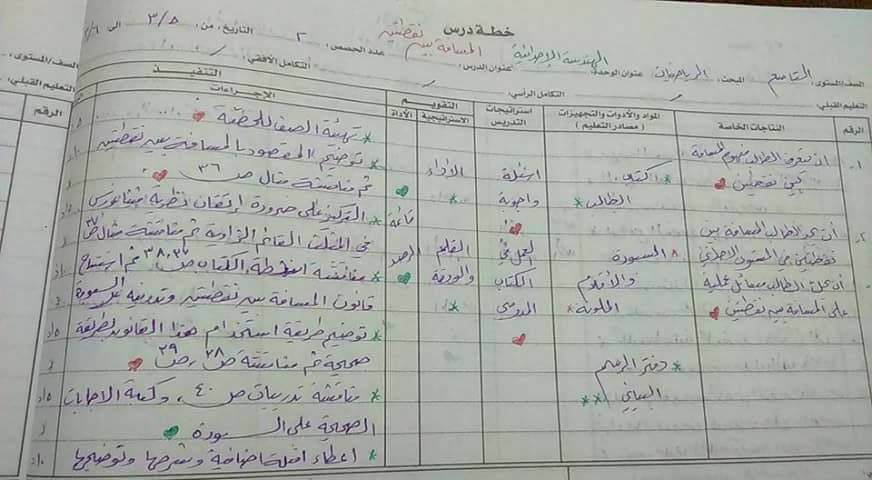 خطة درس
الصف/المستوى: التاسع المبحث: الرياضيات عنوان الوحدة: الهندسة الإحداثية عنوان الدرس: المسافة بين نقطتين عدد الحصص: ٢ التاريخ: من: ٣/٥ الى
التعليم القبلي: التكامل الرأسي: التكامل الأفقي:
الرقم
النتاجات الخاصة
المواد والأدوات والتجهيزات
(مصادر التعليم)
استراتيجيات
التدريس
التقويم
الاستراتيجية
الأداة
التنفيذ
الإجراءات
١-
ان يتعرف الطالب مفهوم المسافة
بين نقطتين
٢-
أن يجد الطالب المسافة بين
نقطتين في المستوى الاحداثي
أن يحل الطالب مسائل عملية
على المسافة بين نقطتين
* الكتاب
الطالب *
* السبورة
والأقلام
الملونة *
* دفتر الرسم
البياني **
اسئلة
واجوبة
العمل في
الكتاب
المدرسي
الأداء
*
القلم
والورقة
*
قائمة
الرصد
* تهيئة الصف للحصة
* توضيح المقصود بالمسافة بين نقطتين
ثم مناقشة مثال ص ٣٦
* التركيز على ضرورة إتقان نظرية فيثاغورس
في المثلث القائم الزاوية ثم مناقشة مثال ص ٣٧
* مناقشة انشطة الكتاب ص ٣٧، ٣٨ ثم استنتاج
قانون المسافة بين نقطتين وتدوينه على السبورة
* توضيح طريقة استخدام هذا القانون بطريقة
صحيحة ثم مناقشة ص ٣٨، ص ٣٩
* مناقشة تدريبات ص ٤٠، وكتابة الاجابات
الصحيحة على السبورة
* اعطاء امثلة اضافية وشرحها وتوضيحها
الصف/المستوى:
التعليم القبلي:
الرقم